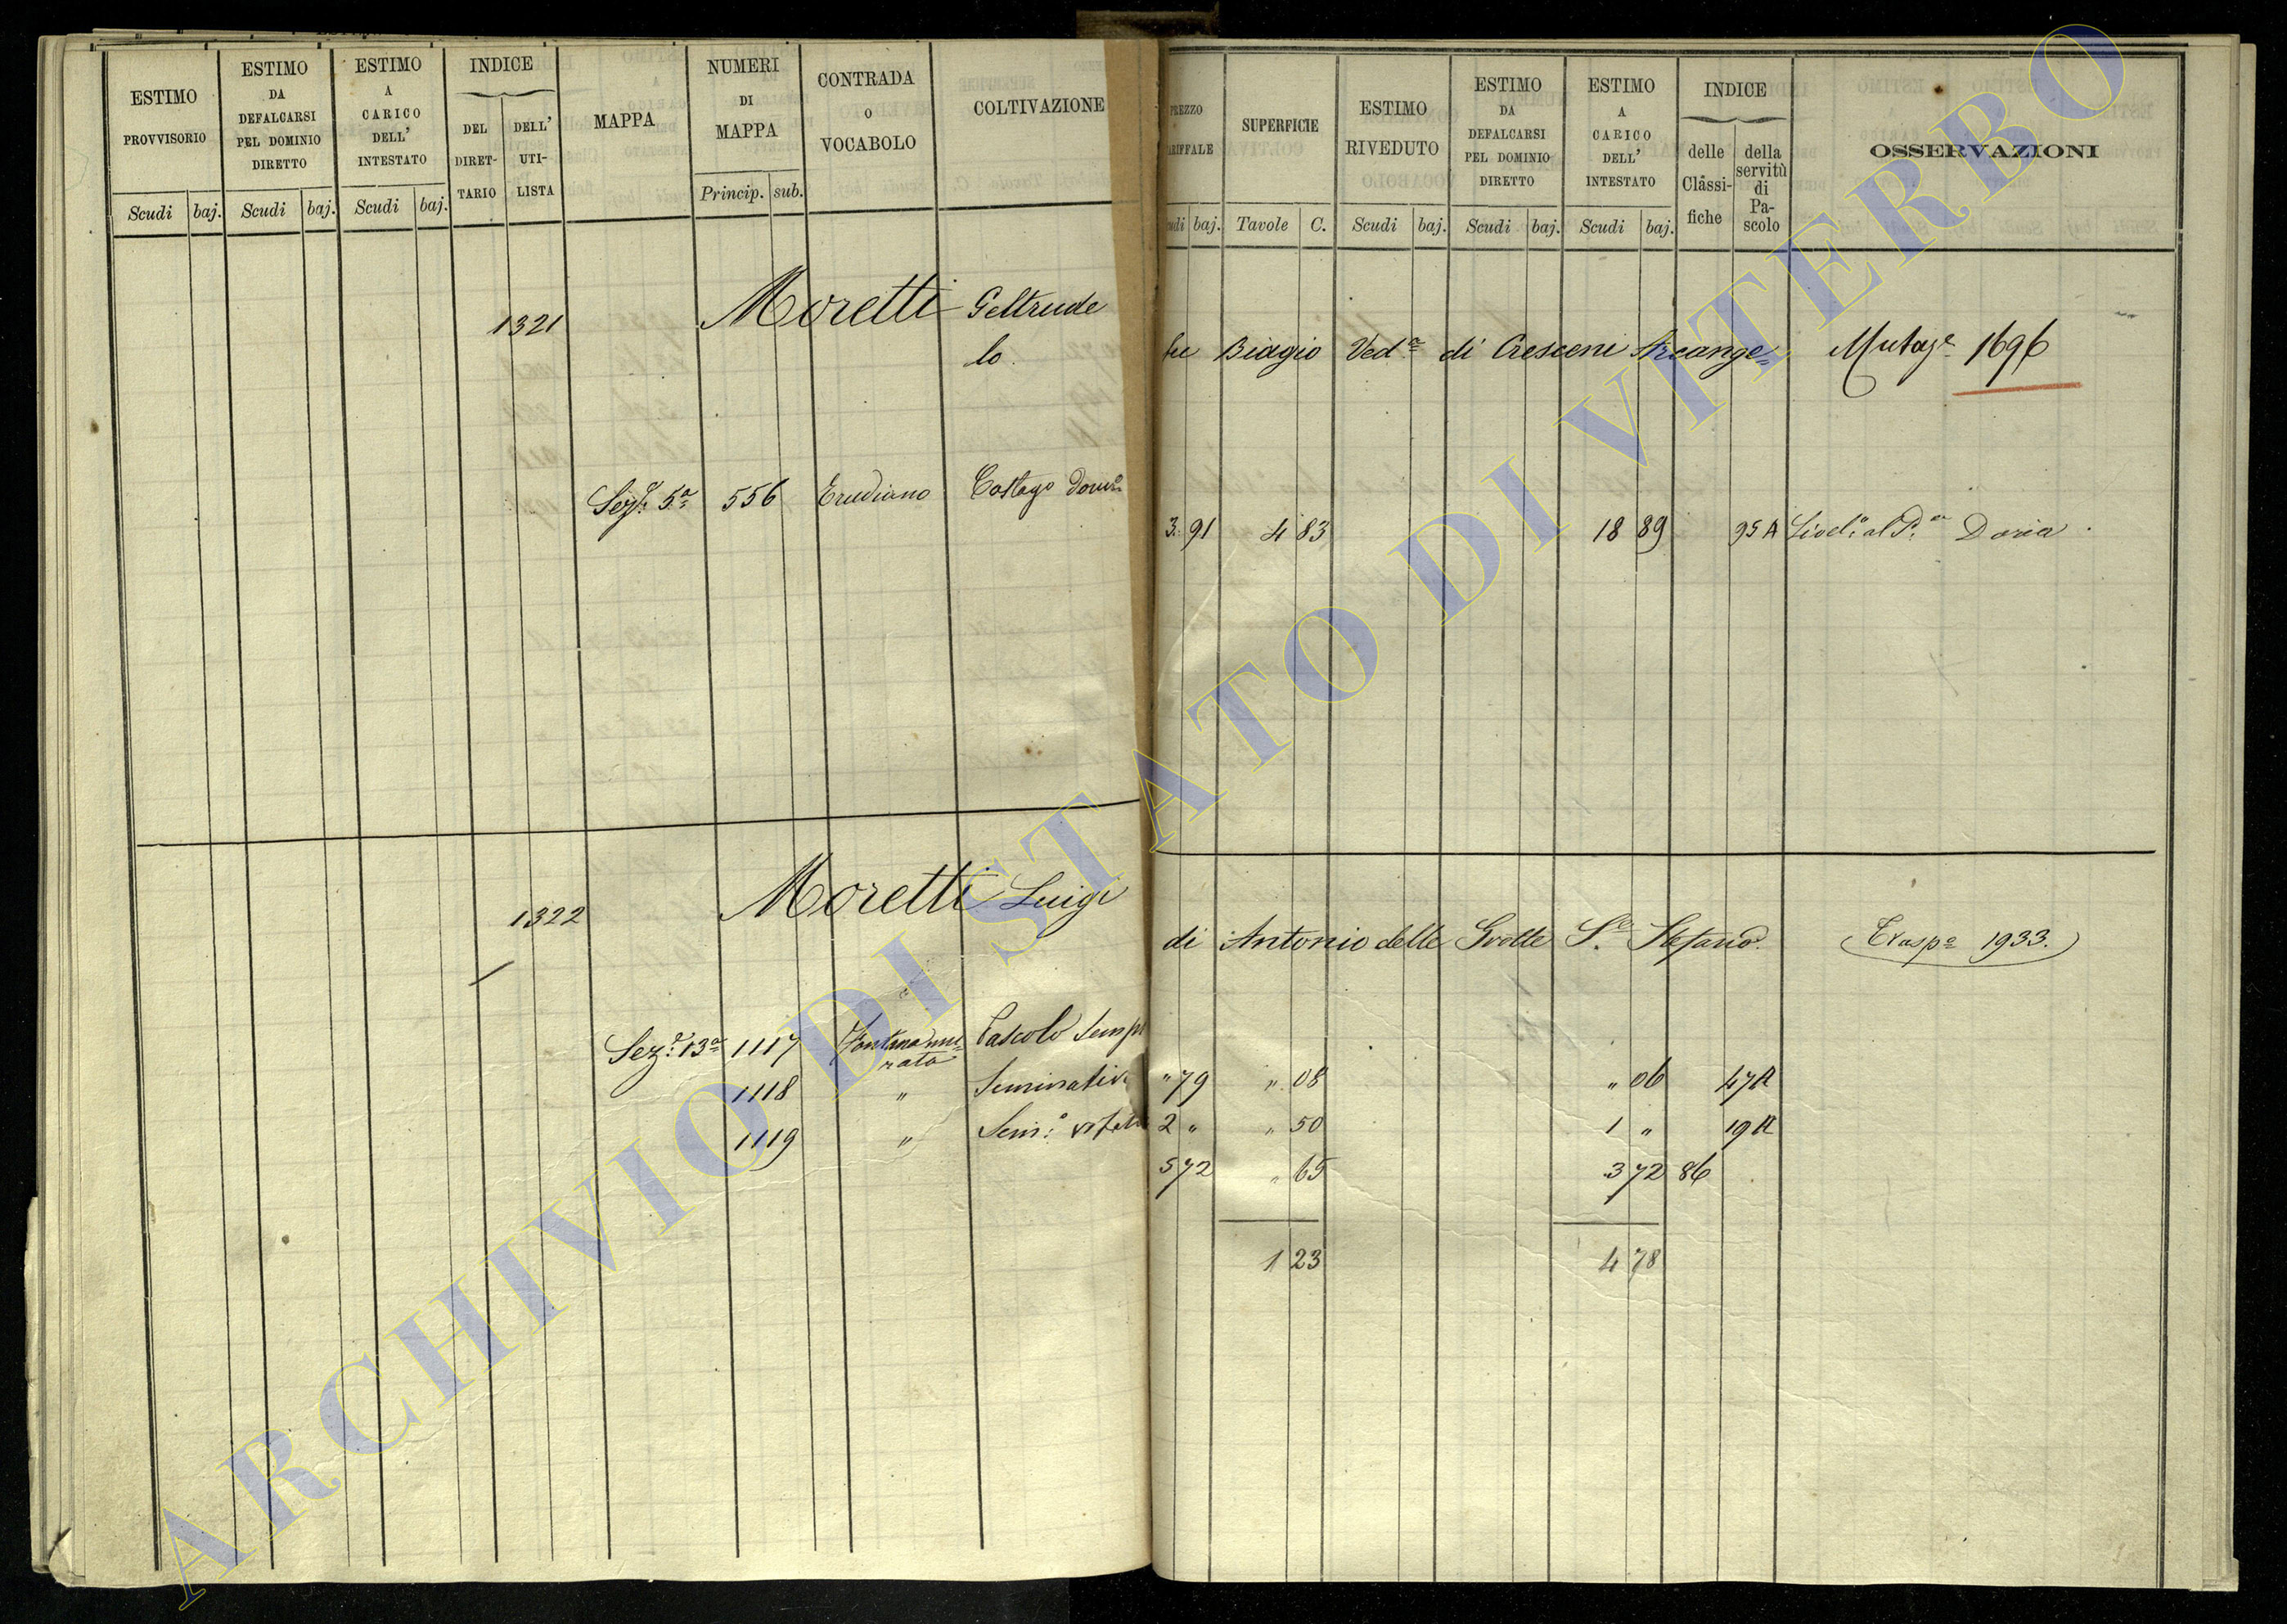 ESTIMO PROVVISORIO
Scudi baj.
ESTIMO DA DEFALCARSI PEL DOMINIO DIRETTO
Scudi baj.
ESTIMO A CARICO DELL' INTESTATO
Scudi baj.
INDICE
DEL DIRET- TARIO
DELL' UTI- LISTA
MAPPA
NUMERI DI MAPPA
Princip. sub.
CONTRADA O VOCABOLO
COLTIVAZIONE
PREZZO
baj.
SUPERFICIE
Tavole C.
ESTIMO RIVEDUTO
Scudi baj.
ESTIMO DA DEFALCARSI PEL DOMINIO DIRETTO
Scudi baj.
ESTIMO A CARICO DELL' INTESTATO
Scudi baj.
INDICE
delle Classi- fiche
della servitù di Pa- scolo
OSSERVAZIONI
1321 Moretti Geltrude fu Biagio Ved.ª di Cresceni Arcange= Mutaz.e 1696
lo.
Sez.e 5.ª 556 Erudiano 3. 91 4 83 18 89 95 A Livel.o al P. Doria
1322 Moretti Luigi di Antonio delle Grotte S.o Stefano. Trasp.e 1933.
Sez.e 13.ª 1117 Fontana mu= Pascolo Semp " 79 " 08 " 06 47 A
rata
1118 " Seminativo 2 " " 50 1 " 19 A
1119 " Sem.o vitato 5 72 " 65 3 72 86
1 23 4 78
ARCHIVIO DI STATO DI VITERBO